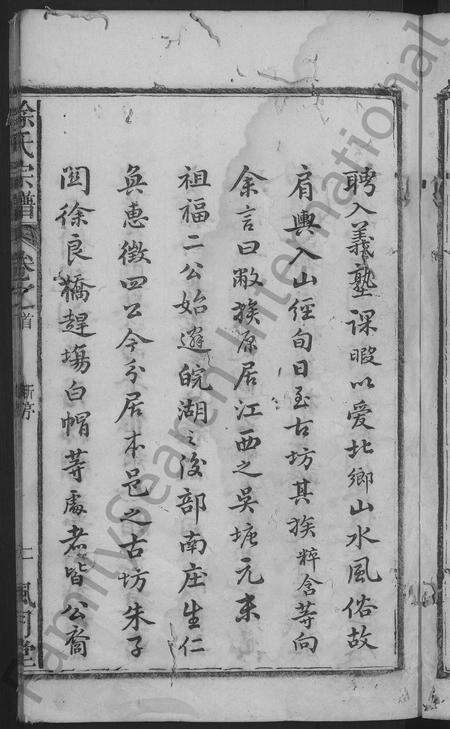 聘入義塾課暇以爱北鄉山水風俗故
肩輿入山經旬日至古坊其族粹含等向
余言曰敝族原居江西之吳塘元末
祖福二公始遷皖湖之後部南庄生仁
奐惠徵四公今分居本邑之古坊朱子
閎徐良橋趕塲白帽等處者皆公裔
徐氏宗譜 卷之首 新序
FamilySearch International